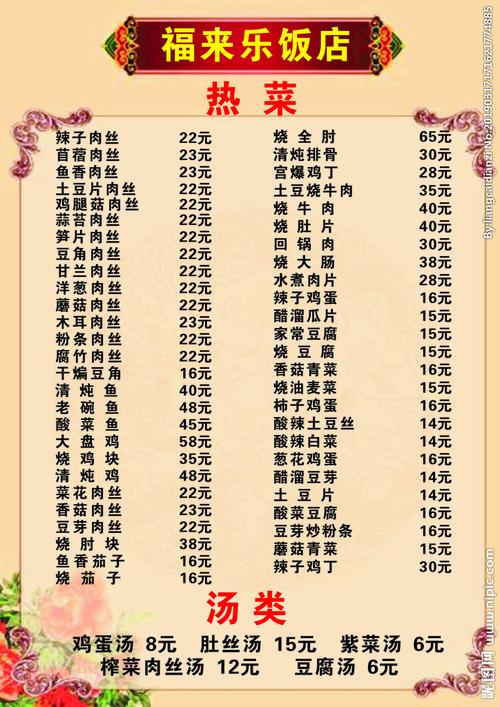 福来乐饭店
热 菜
辣子肉丝 22元
苜蓿肉丝 23元
鱼香肉丝 23元
土豆片肉丝 22元
鸡腿菇肉丝 22元
蒜苔肉丝 22元
笋片肉丝 22元
豆角肉丝 22元
甘兰肉丝 22元
洋葱肉丝 22元
蘑菇肉丝 22元
木耳肉丝 23元
粉条肉丝 22元
腐竹肉丝 22元
干煸豆角 16元
清炖鱼 40元
老碗鱼 48元
酸菜鱼 45元
大盘鸡 58元
烧鸡块 35元
清炖鸡 48元
菜花肉丝 22元
香菇肉丝 23元
豆芽肉丝 22元
烧肘块 38元
鱼香茄子 16元
烧茄子 16元
烧全肘 65元
清炖排骨 30元
宫爆鸡丁 28元
土豆烧牛肉 35元
烧牛肉 40元
烧肚片 40元
回锅肉 30元
烧大肠 38元
水煮肉片 28元
辣子鸡蛋 16元
醋溜瓜片 15元
家常豆腐 15元
烧豆腐 15元
香菇青菜 16元
烧油麦菜 15元
柿子鸡蛋 16元
酸辣土豆丝 14元
酸辣白菜 14元
葱花鸡蛋 16元
醋溜豆芽 14元
土豆片 14元
酸菜豆腐 16元
豆芽炒粉条 16元
蘑菇青菜 15元
辣子鸡丁 30元
汤类
鸡蛋汤 8元 肚丝汤 15元 紫菜汤 6元
榨菜肉丝汤 12元 豆腐汤 6元
By:liangcaidianzi No:20190317171621774885
昵图网 www.nipic.com